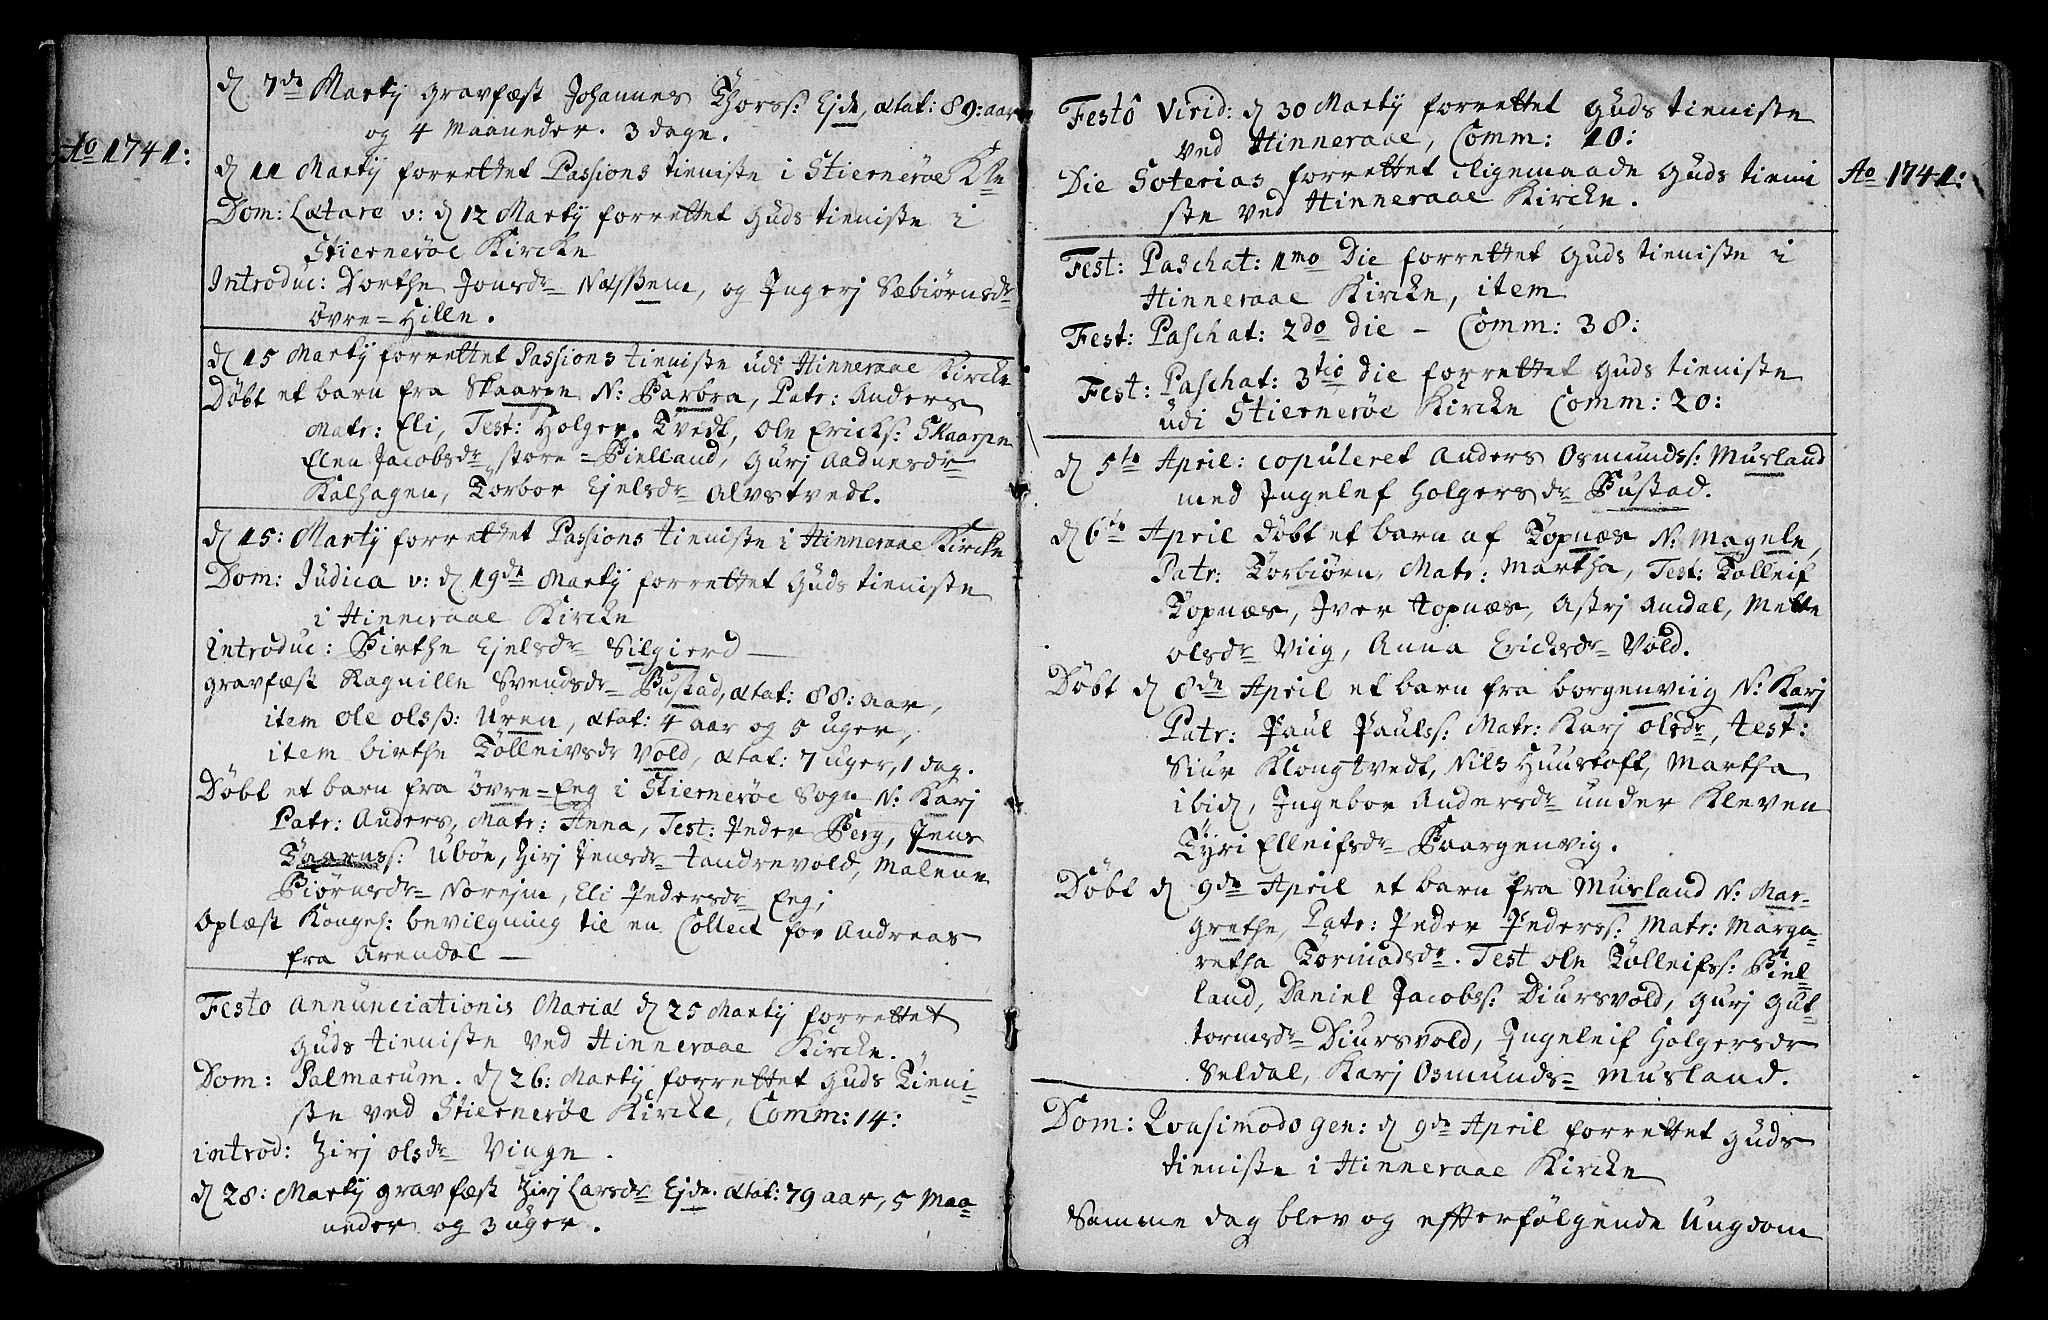 Ao 1741:
d 7de Martij gravfæst Johannes Thorss: Ejde, ætat: 89: aar
og 4 Maaneder. 3 dage.
d 11 Martij forrettet Passions tieniste i Stiernerøe K
Dom: Lætare v: d 12 Martij forrettet Guds tieniste i
Stiernerøe Kircke
Introduc: Dorthe Jonsdr Næssem, og Ingerj Sæbiørnsdr
øvre=Hille.
d 15 Martij forrettet Passions tieniste udi Hinneraae Kircke
Døbt et barn fra Skaarpe N: Barbra, Patr: Anders
Matr: Eli, Test: Holger. Tvedt, Ole Ericks: Skaarpe
Elen Jacobsdr store=Bielland, Gurj Aadnesdr
Kalhagen, Torbor Ejelsdr Alvstvedt.
d 15: Martij forrettet Passions tieniste i Hinneraae Kircke
Dom: Judica v: d 19de Martij forrettet Guds tieniste
i Hinneraae Kircke
introduc: Birthe Ejelsdr Silgierd —
gravfæst Ragnille Svendsdr Bustad, ætat: 88: aar,
item Ole olss: Uren, ætat: 4 aar og 5 uger,
item birthe Tølleivsdr Vold, ætat: 7 uger, 1 dag.
Døbt et barn fra øvre=Eeg i Stiernerøe Sogn N: Karj
Patr: Anders, Matr: Anna, Test: Peder Berg, Jens
ss: Ubøe, Zirj Jensdr tandrevold, Malene
Biørnsdr Norejm, Eli Pedersdr Eeg;
Oplæst Konges: bevilgning til en Collect for Andreas
fra Arendal —
Festo Annunciationis Mariæ d 25 Martij forrettet
Guds tieniste ved Hinneraae Kircke.
Dom: Palmarum. d 26: Martij forrettet Guds Tieni-
ste ved Stiernerøe Kircke, Comm: 14:
introd: Zirj olsdr Vinge.
d 28: Martij gravfæst Zirj Larsdr Ejde. ætat: 79 aar, 5 Maa-
neder og 3 uger.
Festô Virid: d 30 Martij forrettet Guds tieniste
ved Hinneraae, Comm: 10:
Die Soterias forrettet ligemaade Guds tieni
ste ved Hinneraae Kircke.
Ao 1741:
Fest: Paschat: 1mo Die forrettet Guds tieniste i
Hinneraae Kircke, item
Fest: Paschat: 2do die — Comm: 38:
Fest: Paschat: 3tio die forrettet Guds tieniste
udi Stiernerøe Kircke Comm: 20:
d 5te April: copuleret Anders Osmunds: Musland
med Ingelef Holgersdr Bustad.
d 6te April Døbt et barn af Topnæs N: Magele,
Patr: Torbiørn, Matr: Martha, Test: Tolleif
Topnæs, Iver topnæs, Astrj Amdal, Mette
olsdr Viig, Anna Ericksdr Vold.
Døbt d 8de April et barn fra borgenviig N: Karj
Patr: Paul Pauls: Matr: Karj olsdr, test:
Siur Klongtvedt, Nils Huustoft, Martha
ibid, Ingebor Andersdr under Kleven
Tyri Elleifsdr Baargenvig.
Døbt d 9de April et barn fra Musland N: Mar-
grethe, Patr: Peder Pederss: Matr: Marga-
retha Tormodsdr. Test ole Tolleifss: Biel
land, Daniel Jacobss: Diursvold, Gurj Gut-
tormsdr Diursvold, Ingeleif Holgersdr
Seldal, Karj Osmunds= Musland.
Dom: Qvasimodogen: d 9de April forrettet Guds
tieniste i Hinneraae Kircke
Samme dag blev og efterfølgende Ungdom